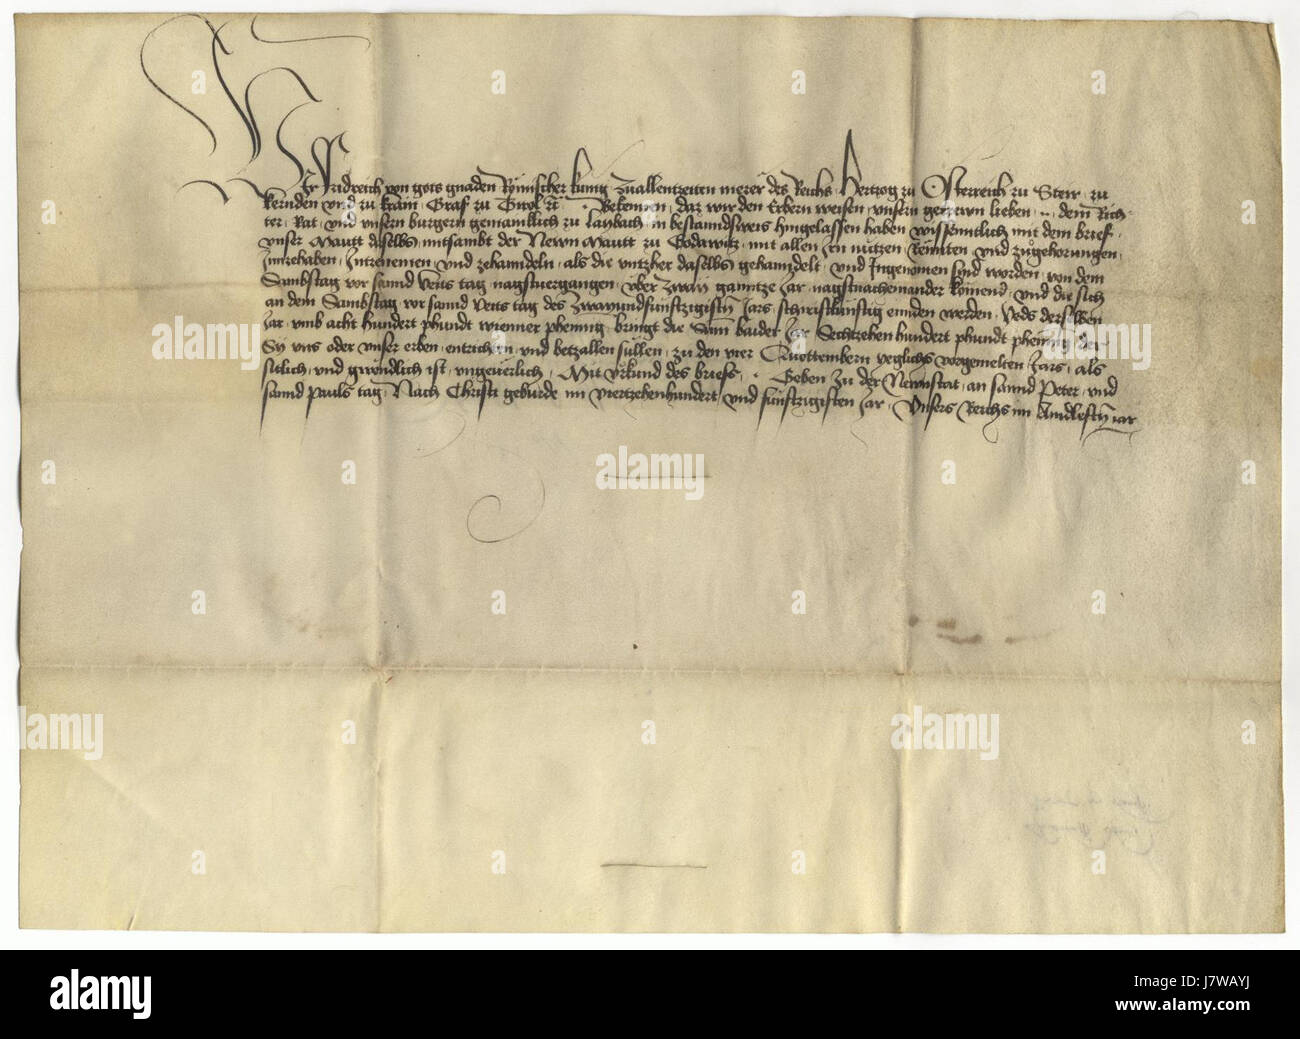 Wir Fridreich von gots gnaden Römischer kunig zuallenzeiten merer des Reichs Hertzog zu Österreich zu Steir zu
kernden und zu krain Graf zu Tirol etc Bekennen daz wir den Erbern weisen unsern getrewn lieben .. dem Rich
ter Rat und unsern burgern gemainklich zu Laybach in bestanndsweis hingelassen haben wissenntlich mit dem brief
unser Mautt daselbs mitsambt der Newn Mautt zu mit allen irn nützen Rennten und zugehorungen
Innzehaben Inzenemen und zehanndeln als die vntzher daselbs gehanndelt und Ingenomen sind worden von dem
Sambstag vor sannd Veits tag nagstuergangen über zway ganntze Jar nagstnacheinander komend und die sich
an dem Sambstag vor sannd Veits tag des zwayundfunftzigisten Jars schiristkunftig ennden werden Yeds derselben
Jar umb acht hundert phundt wienner phennig bringt die Sum baider Jar Sechtzehen hundert phundt phennig der
Sy uns oder unser erben entrichten und betzallen süllen zu den vier Quottembern yeglichs vorgemelten Jars als
sitlich und gwondlich ist ungeuerlich Mit urkund des briefs Geben zu der Newnstat an sannd Peter und
sannd Pauls tag Nach Christi geburde im viertzehenhundert und funftzigisten Jar Unsers Reichs im Aindleften Jar
alamy
Image ID: J7WAYJ
www.alamy.com